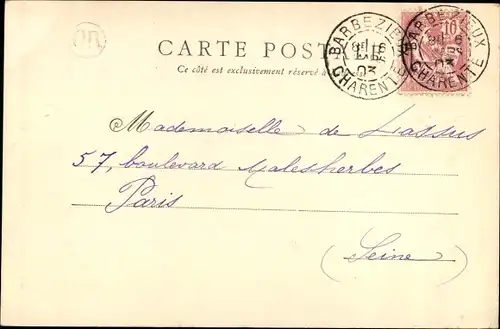 OR
CARTE POSTALE
Ce côté est exclusivement réservé à
BARBEZIEUX
CHARENTE
03
BARBEZIEUX
CHARENTE
03
10
Mademoiselle de Lassus
57, boulevard Malesherbes
Paris
(Seine)